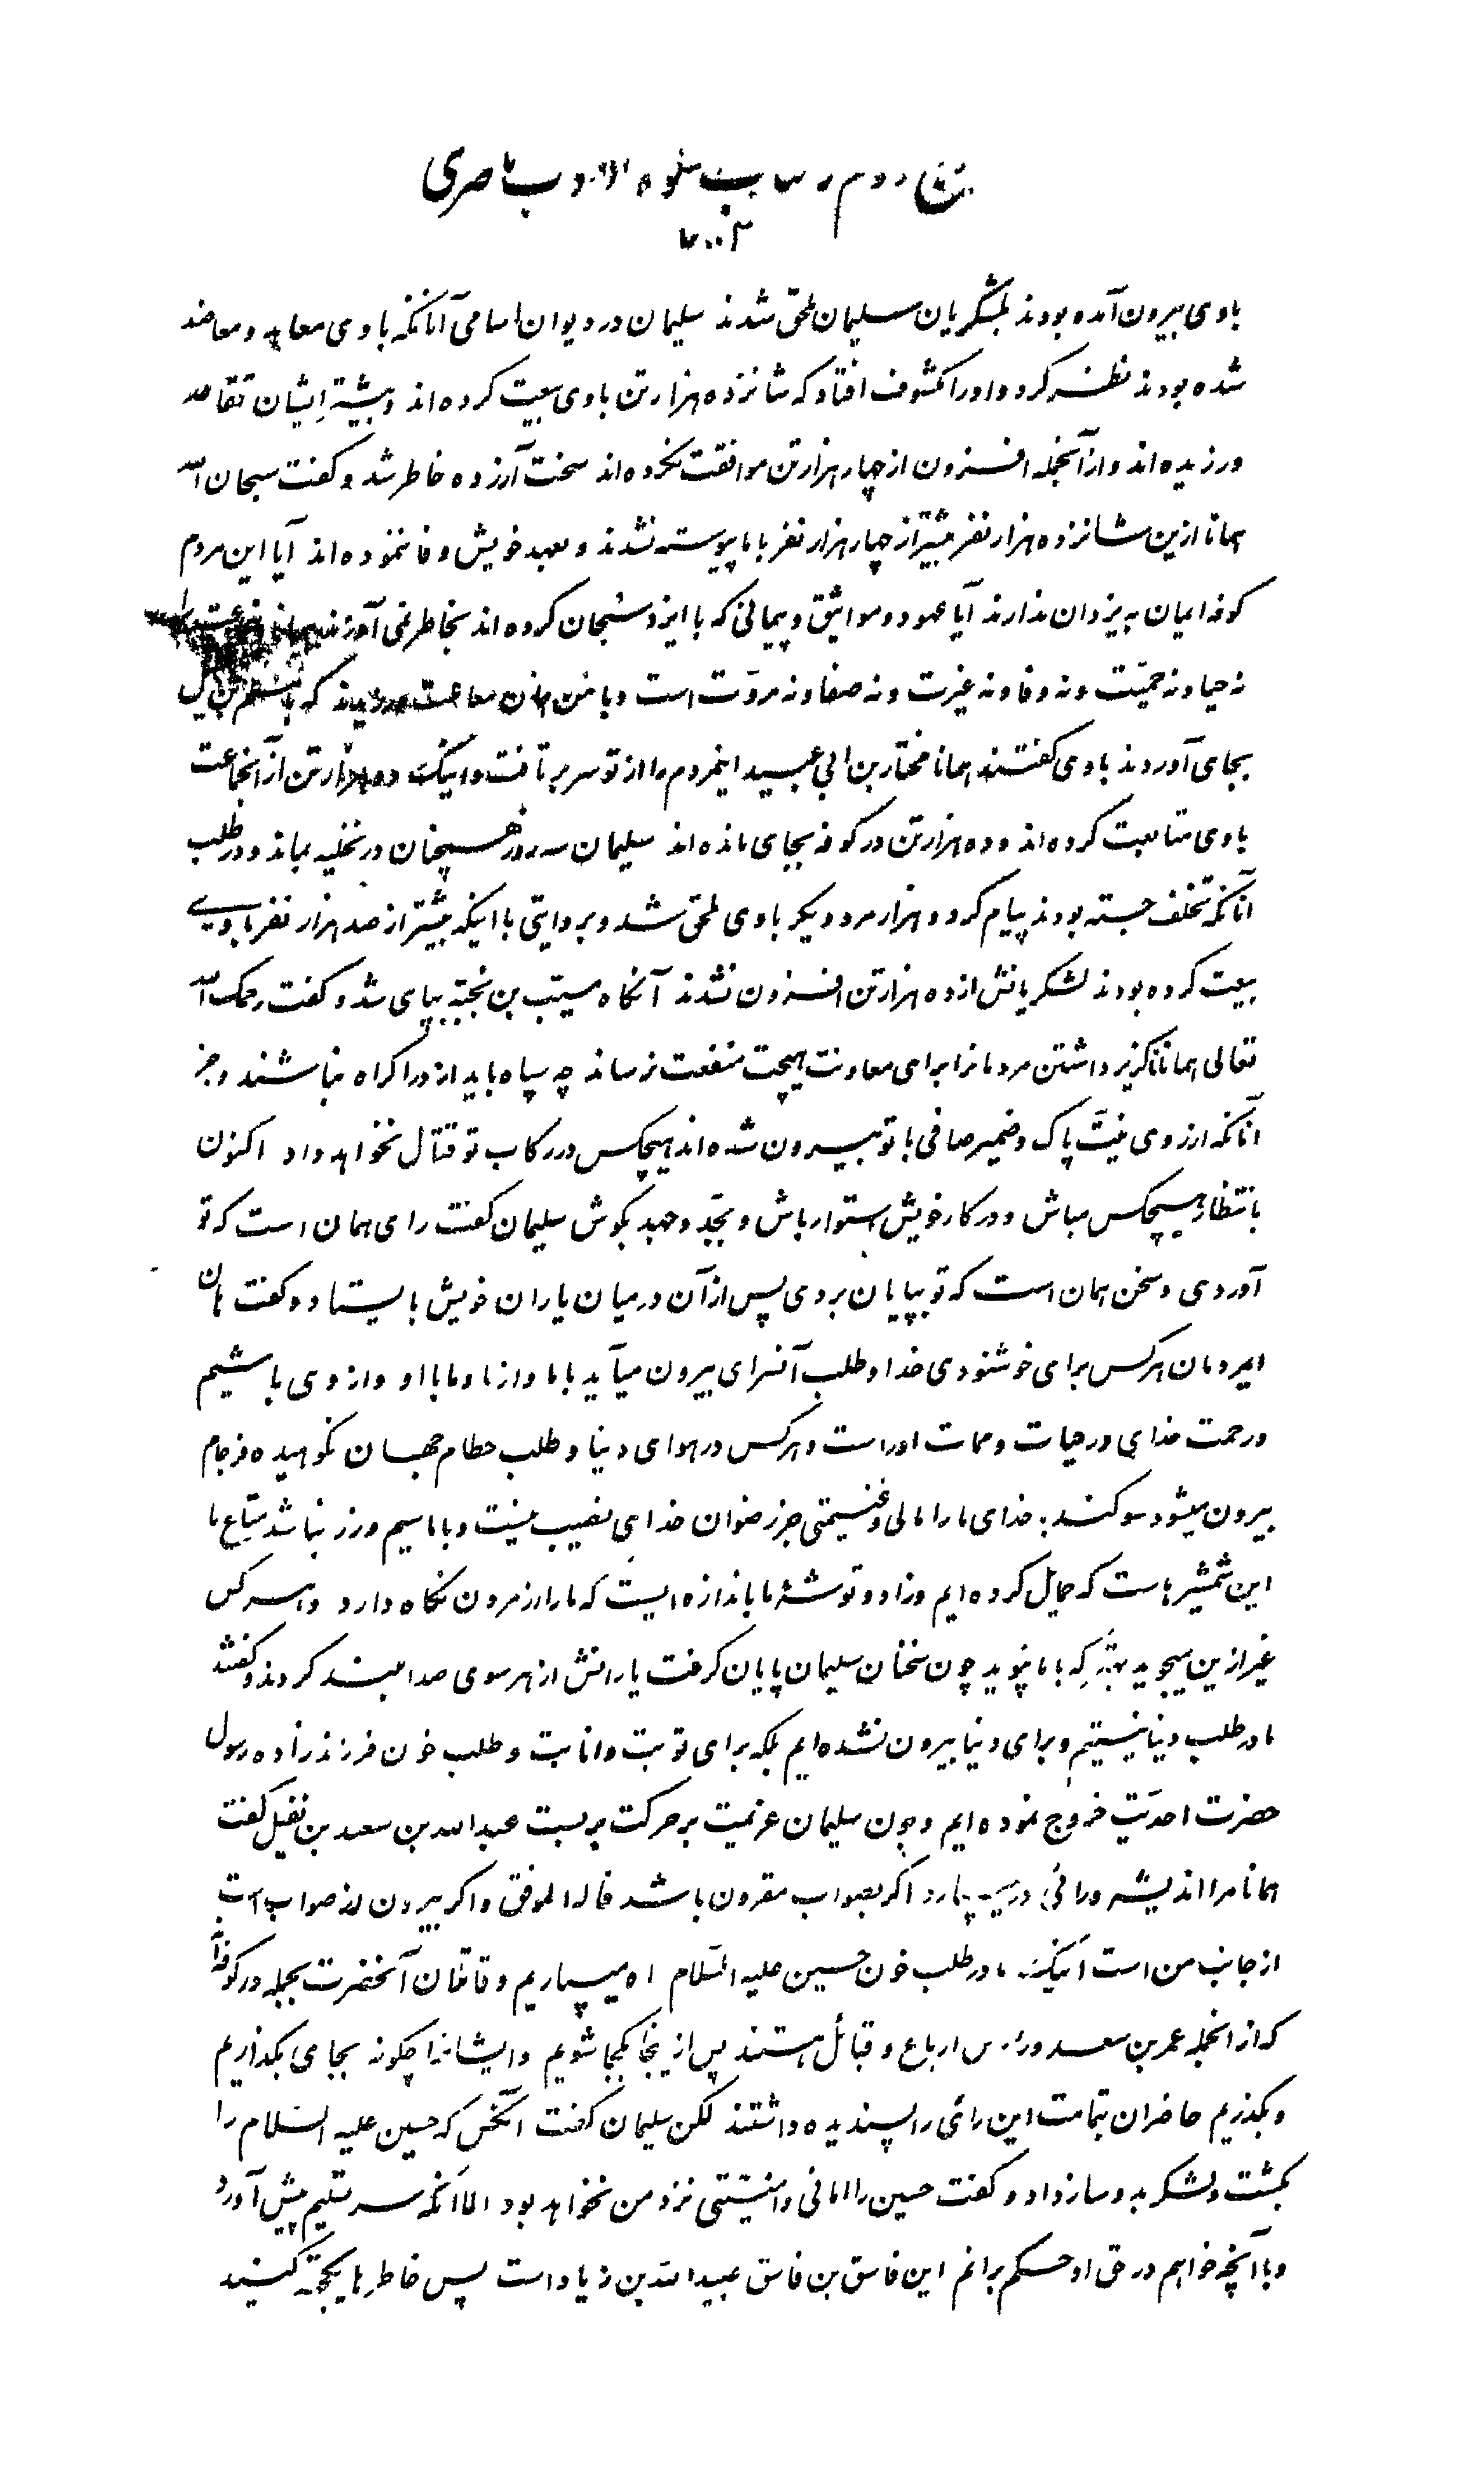 ربع دوم از کتاب مشکوة الادب ناصری
باوی بیرون آمده بودند بلشگریان سلیمان ملحق شدند سلیمان در دیوان اسامی آنانکه باوی معاهد و معاضد
شده بودند نظر کرد و اورا مکشوف افتاد که شانزده هزار تن باوی بیعت کرده اند و بیشتر ایشان تقاعد
ورزیده اند و از آنجمله افزون از چهار هزار تن موافقت نکرده اند سخت آزرده خاطر شد و گفت سبحان الله
همانا ازین شانزده هزار نفر بیشتر از چهار هزار نفر با ما پیوسته نشدند و بعهد خویش وفا ننموده اند آیا این مردم
کوفه ایمان به یزدان ندارند آیا عهود و مواثیق و پیمانی که با ایزد سبحان کرده اند بخاطر نمی آورند
نه حیا و نه حمیت و نه وفا و نه غیرت و نه صفا و نه مروت است و با من
بجای آوردند باوی گفتند همانا مختار بن ابی عبید اینمردم را از تو سر برتافت و اینک دو هزار تن از آنجماعت
باوی متابعت کرده اند و ده هزار تن در کوفه بجای مانده اند سلیمان سه روز همچنان در نخلیه بماند و در طلب
آنانکه تخلف جسته بودند پیام کرد و هزار مرد دیگر باوی ملحق شد و بروایتی با اینکه بیشتر از صد هزار نفر باوی
بیعت کرده بودند لشکریانش از ده هزار تن افزون نشدند آنگاه مسیب بن نجبه بپای شد و گفت رحمک الله
تعالی همانا ناگزیر داشتن مردمانرا برای معاونت هیچت منفعت نرساند چه سپاه باید از در اکراه نباشند و جز
آنانکه از روی نیت پاک و ضمیر صافی با تو بیرون شده اند هیچکس در رکاب تو قتال نخواهد داد اکنون
بانتظار هیچکس مباش و در کار خویش استوار باش و بجد و جهد بکوش سلیمان گفت رای همان است که تو
آوردی و سخن همان است که تو بپایان بردی پس از آن در میان یاران خویش بایستاد و گفت هان
ایمردمان هرکس برای خوشنودی خدا و طلب آنسرای بیرون میآید با ما و از ما و ما با او و از وی باشیم
و رحمت خدای در حیات و ممات اوراست و هرکس در هوای دنیا و طلب حطام جهان نکوهیده فرجام
بیرون میشود سوگند بخدای ما را مالی و غنیمتی جز رضوان خدای نصیب نیست و با ما سیم و زر نباشد متاع ما
این شمشیرهاست که حمایل کرده ایم و زاد و توشۀ ما باندازه ایست که ما را از مردن نگاه دارد و هرکس
غیر ازین میجوید بهتر که با ما نپوید چون سخنان سلیمان پایان گرفت یارانش از هر سوی صدا بلند کردند و گفتند
ما در طلب دنیا نیستیم و برای دنیا بیرون نشده ایم بلکه برای توبت و انابت و طلب خون فرزند زاده رسول
حضرت احدیت خروج نموده ایم و چون سلیمان عزیمت بر حرکت بر بست عبدالله بن سعد بن نفیل گفت
همانا مرا اندیشه و رائی اگر بصواب مقرون باشد فالله الموفق و اگر بیرون از صواب است
از جانب من است اینک ما در طلب خون حسین علیه السلام راه میسپاریم و قاتلان آنحضرت بجمله در کوفه اند
که از انجمله عمر بن سعد و رؤس ارباع و قبائل هستند پس از اینجا بکجا شویم و ایشانرا چگونه بجای بگذاریم
و بگذریم حاضران بتمامت این رائی را پسندیده داشتند لکن سلیمان گفت آنکس که حسین علیه السلام را
بکشت و لشکر بدو ساز داد و گفت حسین را امانی و امنیتی نزد من نخواهد بود الا آنکه سر تسلیم پیش آورد
و با آنچه خواهم در حق او حکم برانم این فاسق بن فاسق عبیدالله بن زیاد است پس خاطرها یکجهة کنید